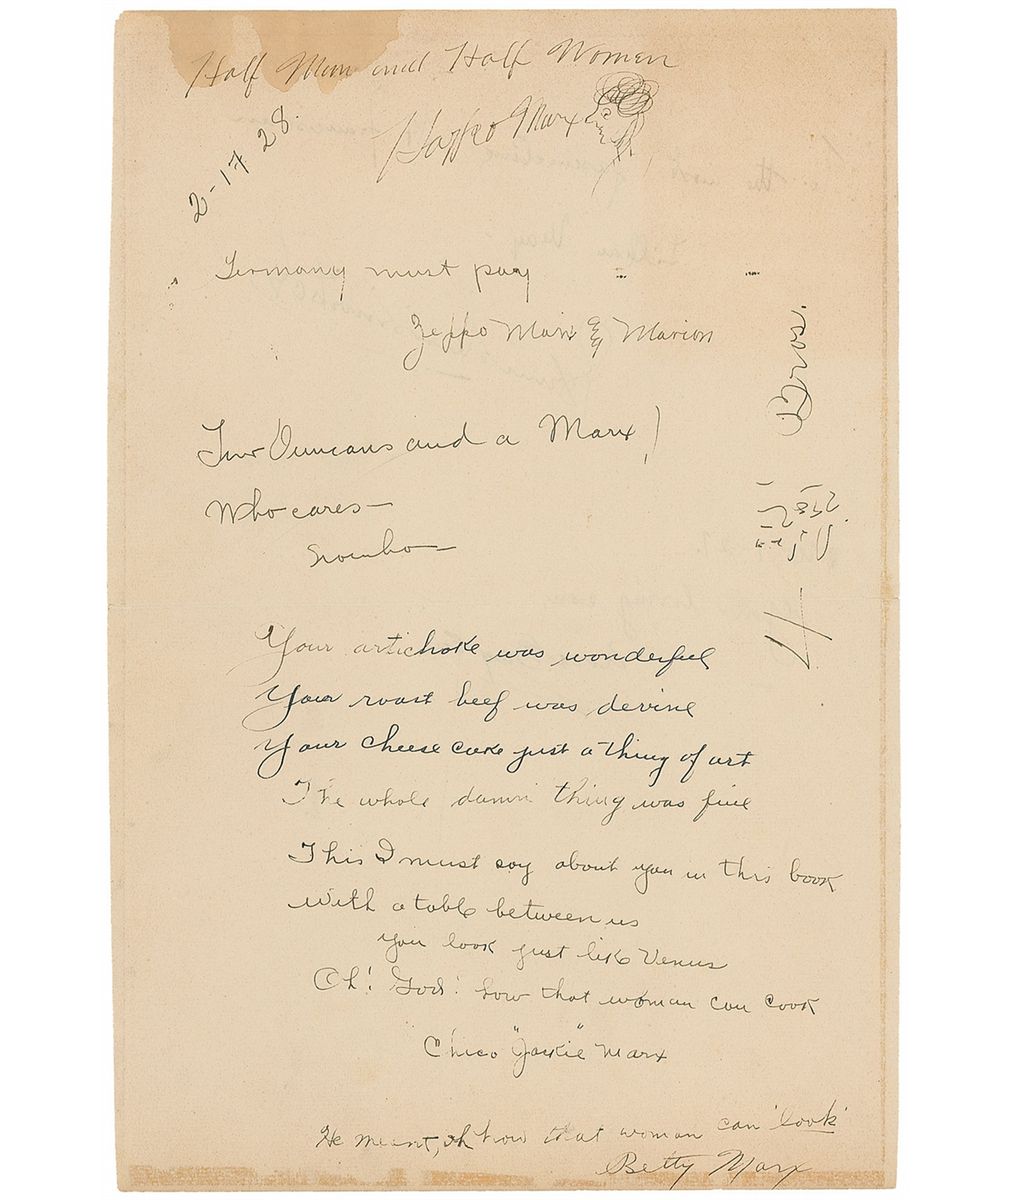 Half Man and Half Women
Harpo Marx
2-17 28.
Germany must pay
Zeppo Marx & Marion
Two Duncans and a Marx!
Who cares —
Your artichoke was wonderful
Your roast beef was devine
Your cheese cake just a thing of art
The whole damn thing was fine
This I must say about you in this book
With a table between us
You look just like Venus
Oh! God! how that woman can cook
Chico "Jackie" Marx
He meant, oh how that woman can 'look'
Betty Marx
4
Bros.